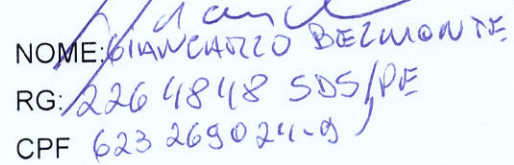 NOME: GIANCARLO BELMONTE
RG: 2264848 SDS/PE
CPF 623 269024-9